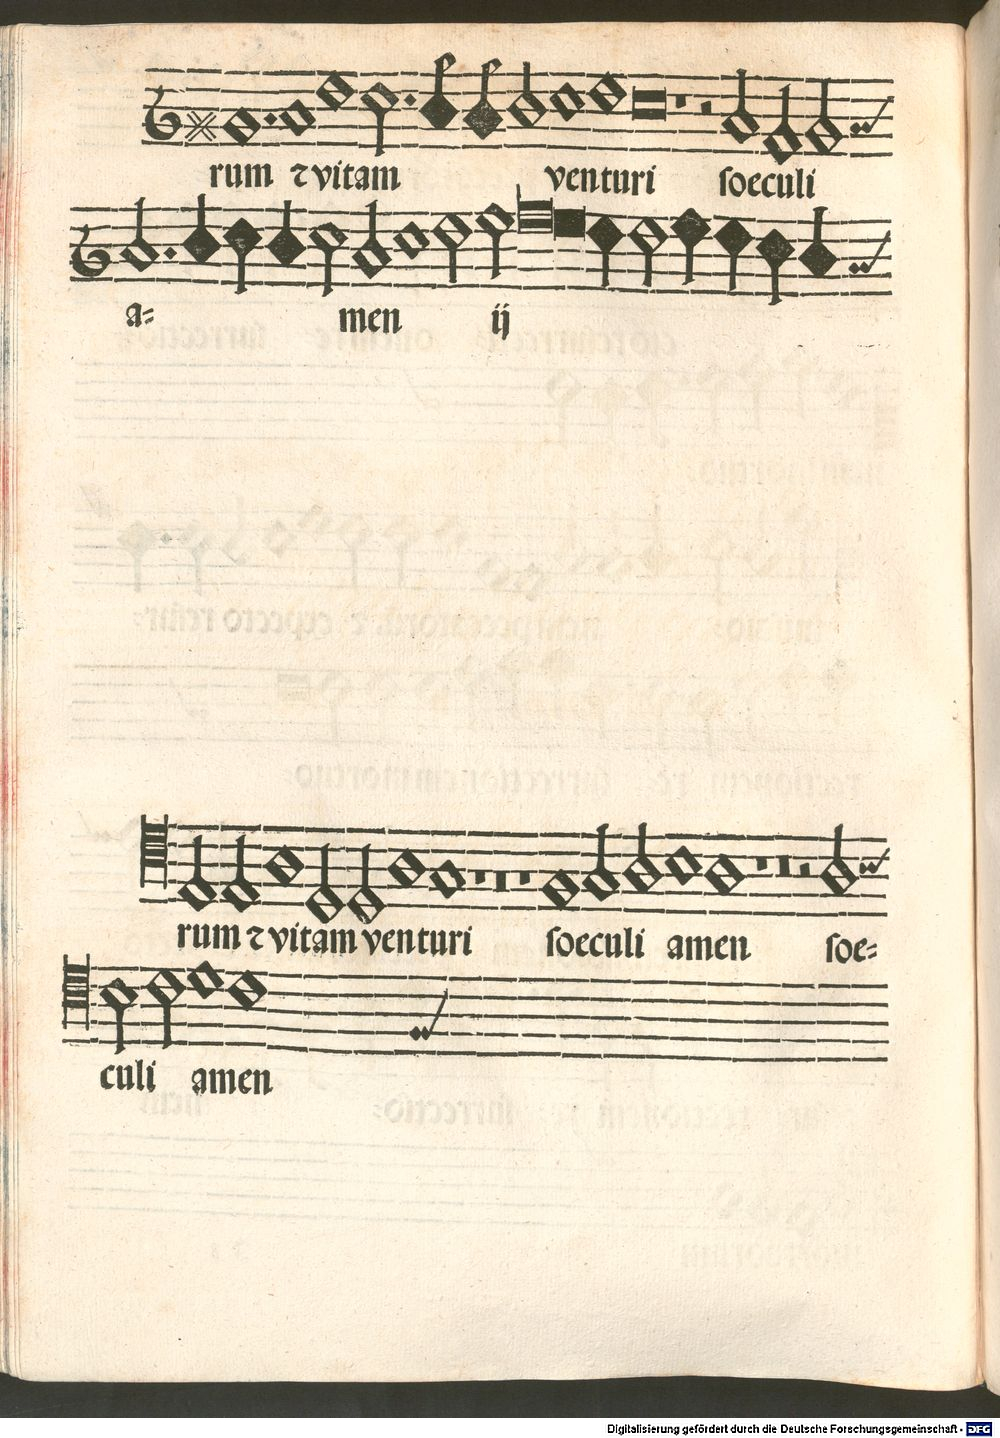 rum ⁊ vitam venturi soeculi
a= men ij
rum ⁊ vitam venturi soeculi amen soe=
culi amen
Digitalisierung gefördert durch die Deutsche Forschungsgemeinschaft - DFG